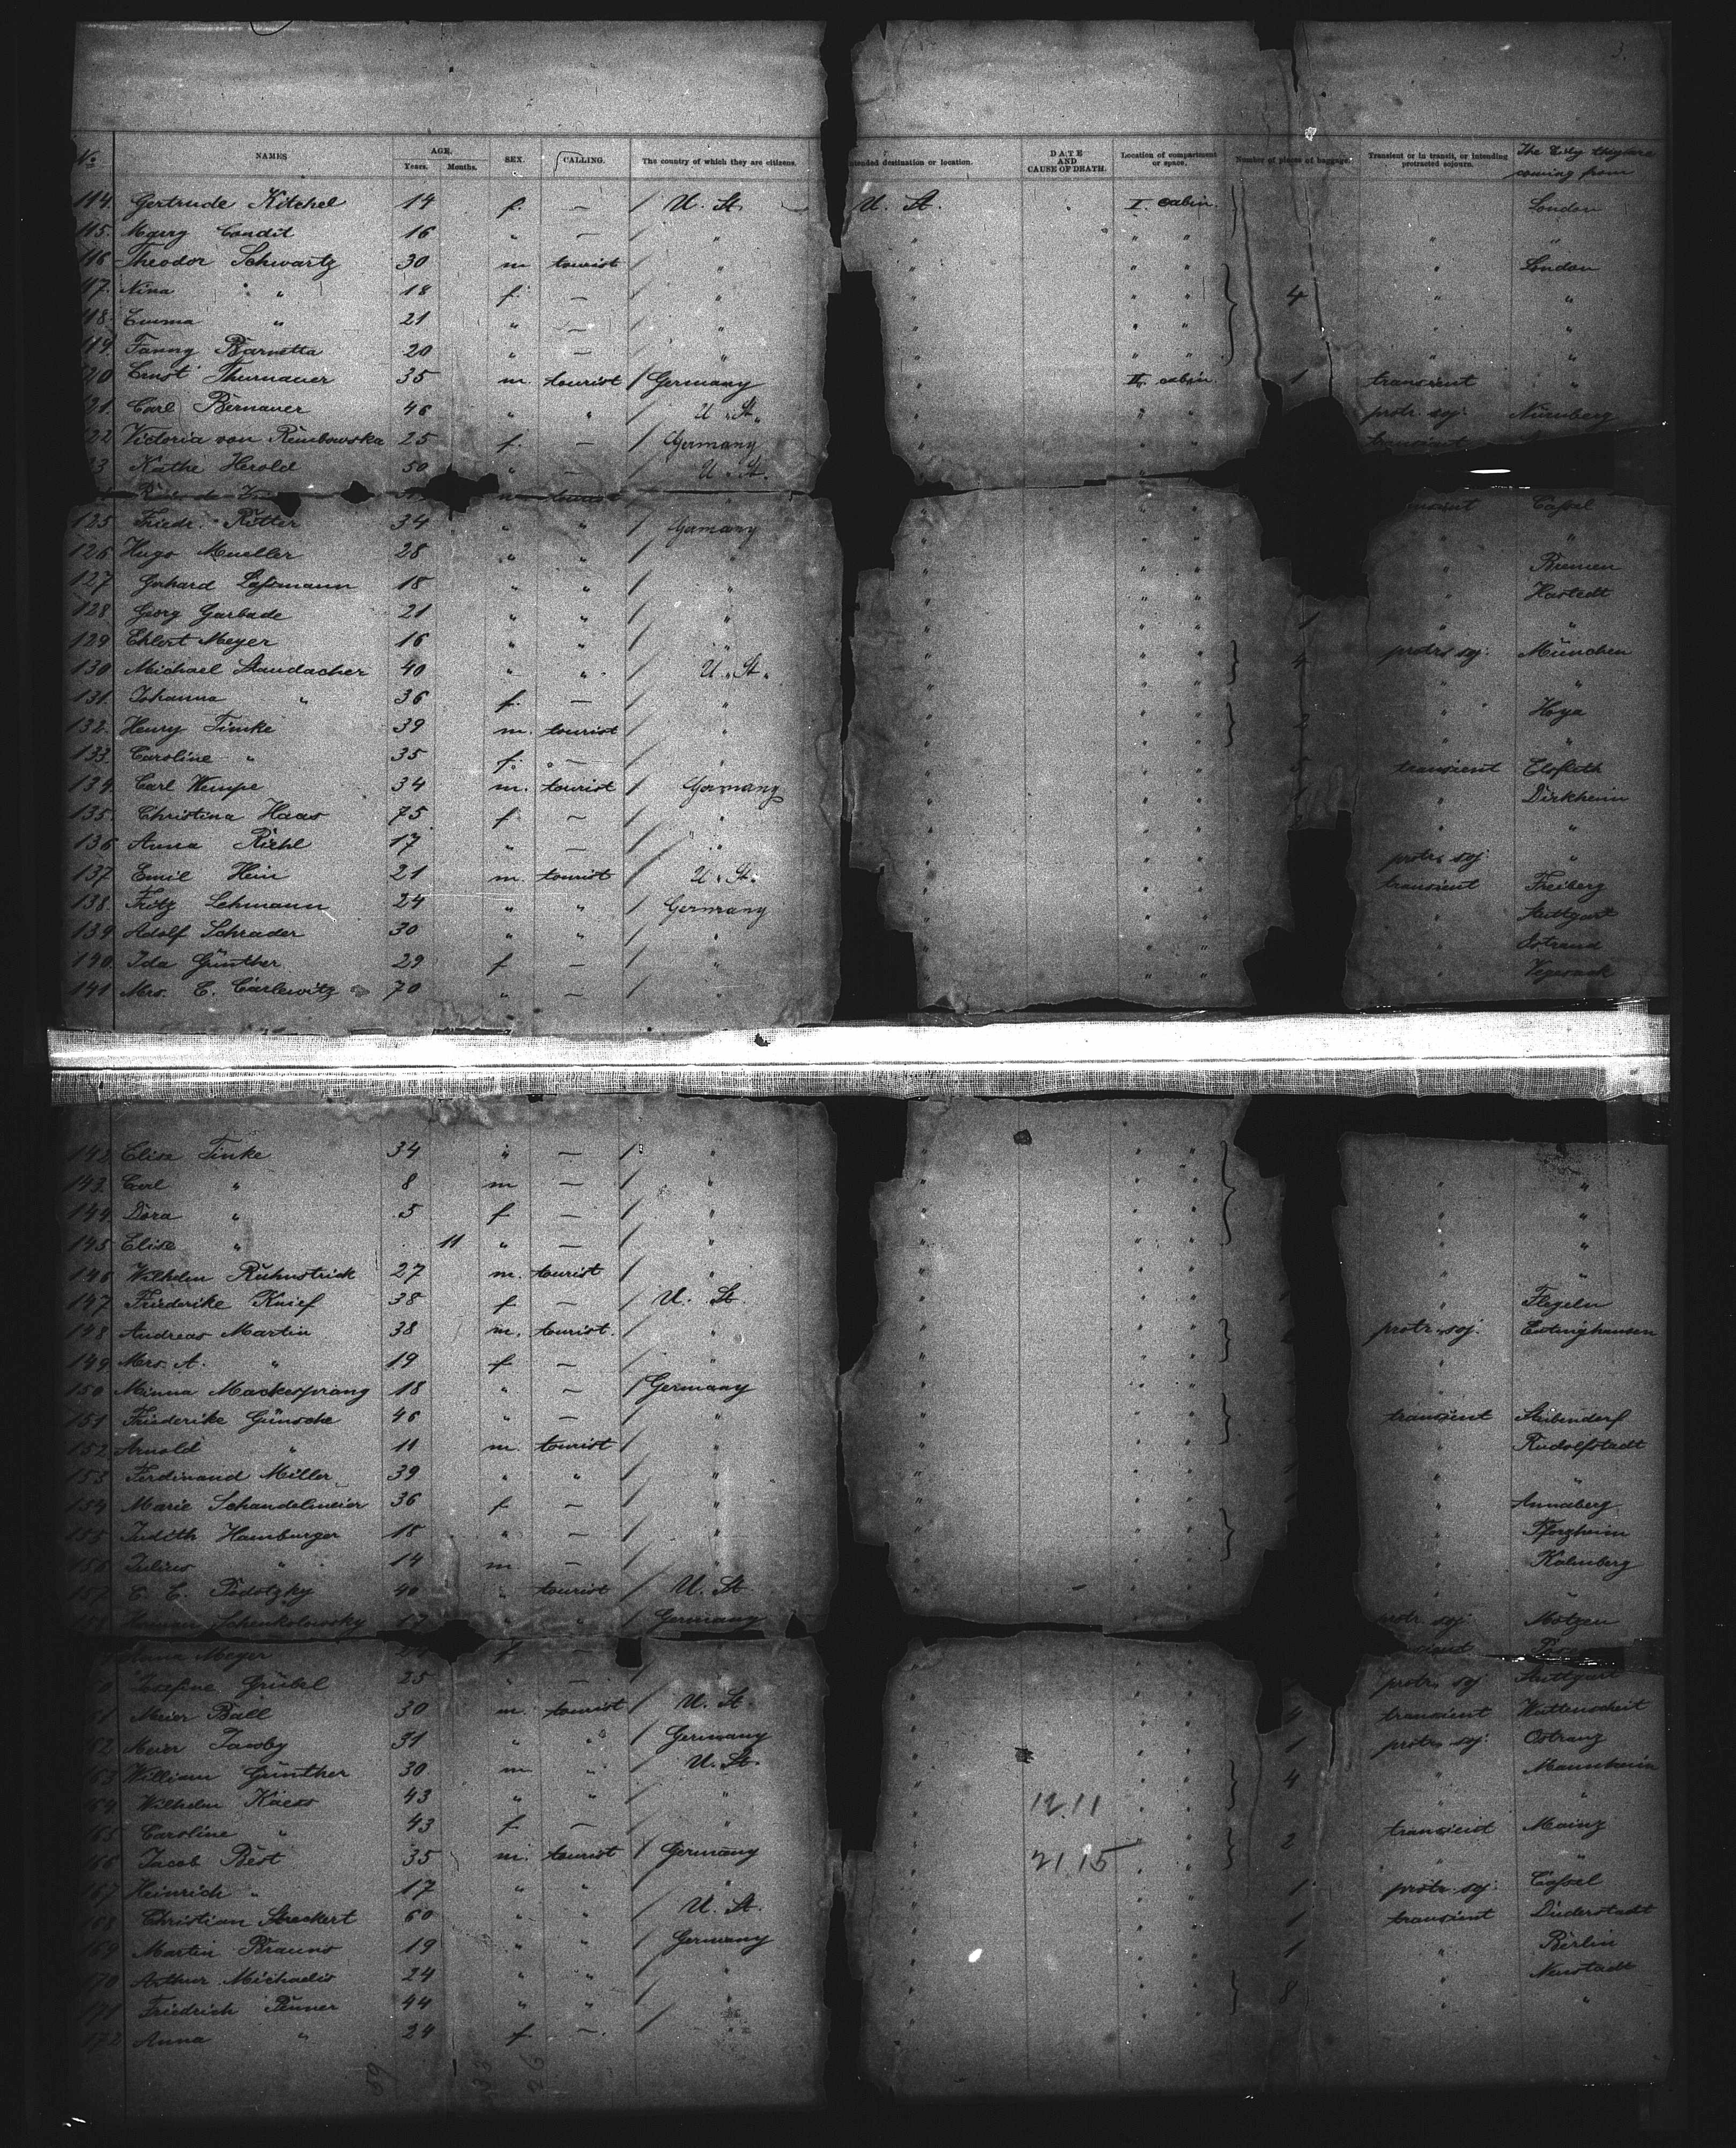 3.
No. NAMES AGE. Years. Months. SEX. CALLING. The country of which they are citizens. ntended destination or location. DATE AND CAUSE OF DEATH. Location of compartment or space. Number of pieces of baggage. Transient or in transit, or intending protracted sojourn. The City they are coming from
114. Gertrude Kitchel 14 f. — / U. St. U. St. I cabin. London
115. Marry Condit 16 " — / " " " " " "
116 Theodor Schwartz 30 m tourist / " " " " " London
117. Nina " 18 f. — / " " " " 4 " "
118. Emma " 21 " — / " " " " " "
119. Fanny Barnetta 20 " — / " " " " " "
20 Ernst Thurnauer 35 m. tourist / Germany " II. cabin. 1 transient "
21. Carl Bernauer 46 " " / U. St. " " " protr. soj. Nürnberg
22 Victoria von Rembowska 25 f. — / Germany " " " transient
23 Käthe Herold 50 " — / U. St. "
tourist "
125. Friedr. Ritter 34 " " / Germany " " " Cassel
126 Hugo Mueller 28 " " / " " " " "
127 Gerhard 18 " " / " " " " " Bremen
128 Georg Garbade 21 " " / " " " " " Hastedt
129 Ehlert Meyer 16 " " / " " " " 1 " "
130 Michael Staudacher 40 " " / U. St. " " " 4 protr. soj. München
131. Johanna " 36 f. — / " " " " "
132. Henry Timke 39 m. tourist / " " " " 2 " Hoya
133. Caroline " 35 f. — / " " " " "
134. Carl Wempe 34 m. tourist / Germany " " " 5 transient Elsfleth
135. Christina Haas 75 f — / " " " " " Dirkheim
136 Anna Riehl 17 " — / " " " " " "
137. Emil Hein 21 m. tourist / U. St. " " " protr. soj. "
138. Fritz Lehmann 24 " " / Germany " " " transient Freiberg
139 Adolf Schrader 30 " " / " " " " " Stuttgart
140. Ida Günther 29 f — / " " " " " Ostrand
141 Mrs. C. Carlewitz 70 " — / " " " " " Vegesack
142 Elise Tinke 34 " — / " " " "
143. Carl " 8 m — / " " " " " "
144. Dora " 5 f — / " " " " " "
145 Elise " 11 " — / " " " " " "
146 Wilhelm Ruhnstrick 27 m. tourist / " " " " " "
147 Friederike Knief 38 f — / U. St. " " " " Flegeln
148 Andreas Martin 38 m. tourist. / " " " " protr. soj. Eutinghausen
149 Mrs. A. " 19 f — / " " " " "
150 Minna Mackesprang 18 " — / Germany " " "
151 Friederike Günsche 46 " — / " " " " transient Steibendorf
152 Arnold " 11 m. tourist / " " " " " Rudolfstadt
153 Ferdinand Miller 39 " " / " " " " " "
154 Marie Schandelmeier 36 f — / " " " " " Annaberg
155 Judith Hamburger 18 " — / " " " " " Pforzheim
156 Julius " 14 m — / " " " " " Kalmberg
157. C. E. Podotzky 40 " tourist / U. St. " " "
158 Herman Schenkolowsky 17 " " / Germany " " " protr. soj Mötzen
Anna Meyer f —
0 Josefine Grübel 25 " — / " " " protr. soj Stuttgart
61 Meier Ball 30 m. tourist / U. St. " " " 4 transient Wattenscheit
62 Meier Jacoby 31 " " / Germany " " " 1 protr. soj. Ostranz
163 William Günther 30 m " U. St. " " " 4 " Mannheim
64 Wilhelm Kaess 43 " " " " 12.11 " " " "
165 Caroline " 43 f — " " " " transient Mainz
166 Jacob Best 35 m. tourist / Germany " 21.15 " " 2 " "
167 Heinrich " 17 " " " " " " 1 protr. soj. Cassel
168 Christian Streckert 60 " " U. St. " " " 1 transient Duderstadt
169 Martin Brauns 19 " " Germany " " " 1 " Berlin
170 Arthur Michaelis 24 " " / " " " " " Neustadt
171 Friedrich Penner 44 " " / " " " 8 " "
172 Anna " 24 f. — " " " "
59 33 26